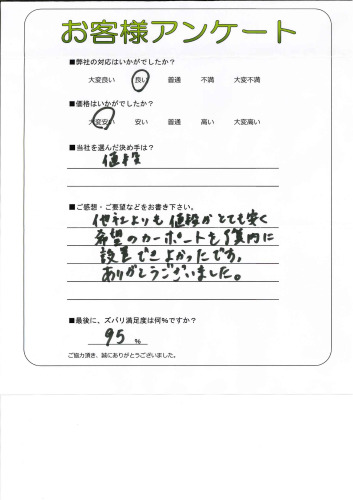 お客様アンケート
■弊社の対応はいかがでしたか？
大変良い 良い 普通 不満 大変不満
■価格はいかがでしたか？
大変安い 安い 普通 高い 大変高い
■当社を選んだ決め手は？
値段
■ご感想・ご要望などをお書き下さい。
他社よりも値段がとても安く
希望のカーポートを 内に
設置できよかったです。
ありがとうございました。
■最後に、ズバリ満足度は何%ですか？
95 %
ご協力頂き、誠にありがとうございました。